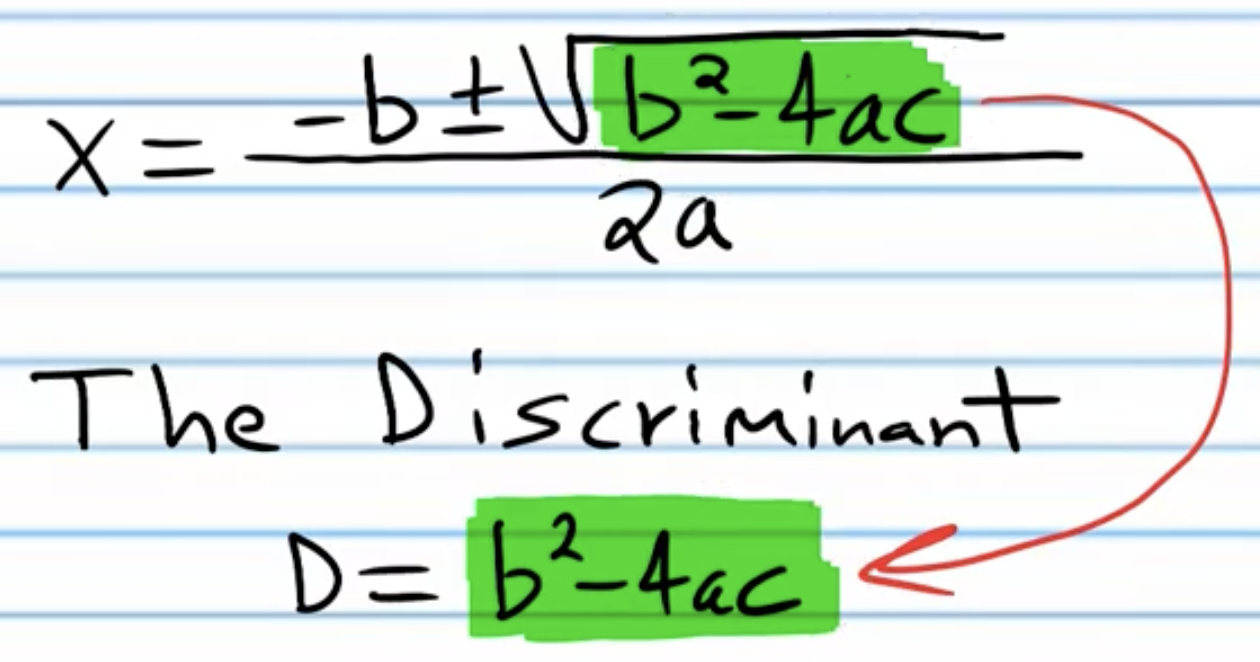 x = (-b ± √(b² - 4ac)) / 2a
The Discriminant
D = b² - 4ac